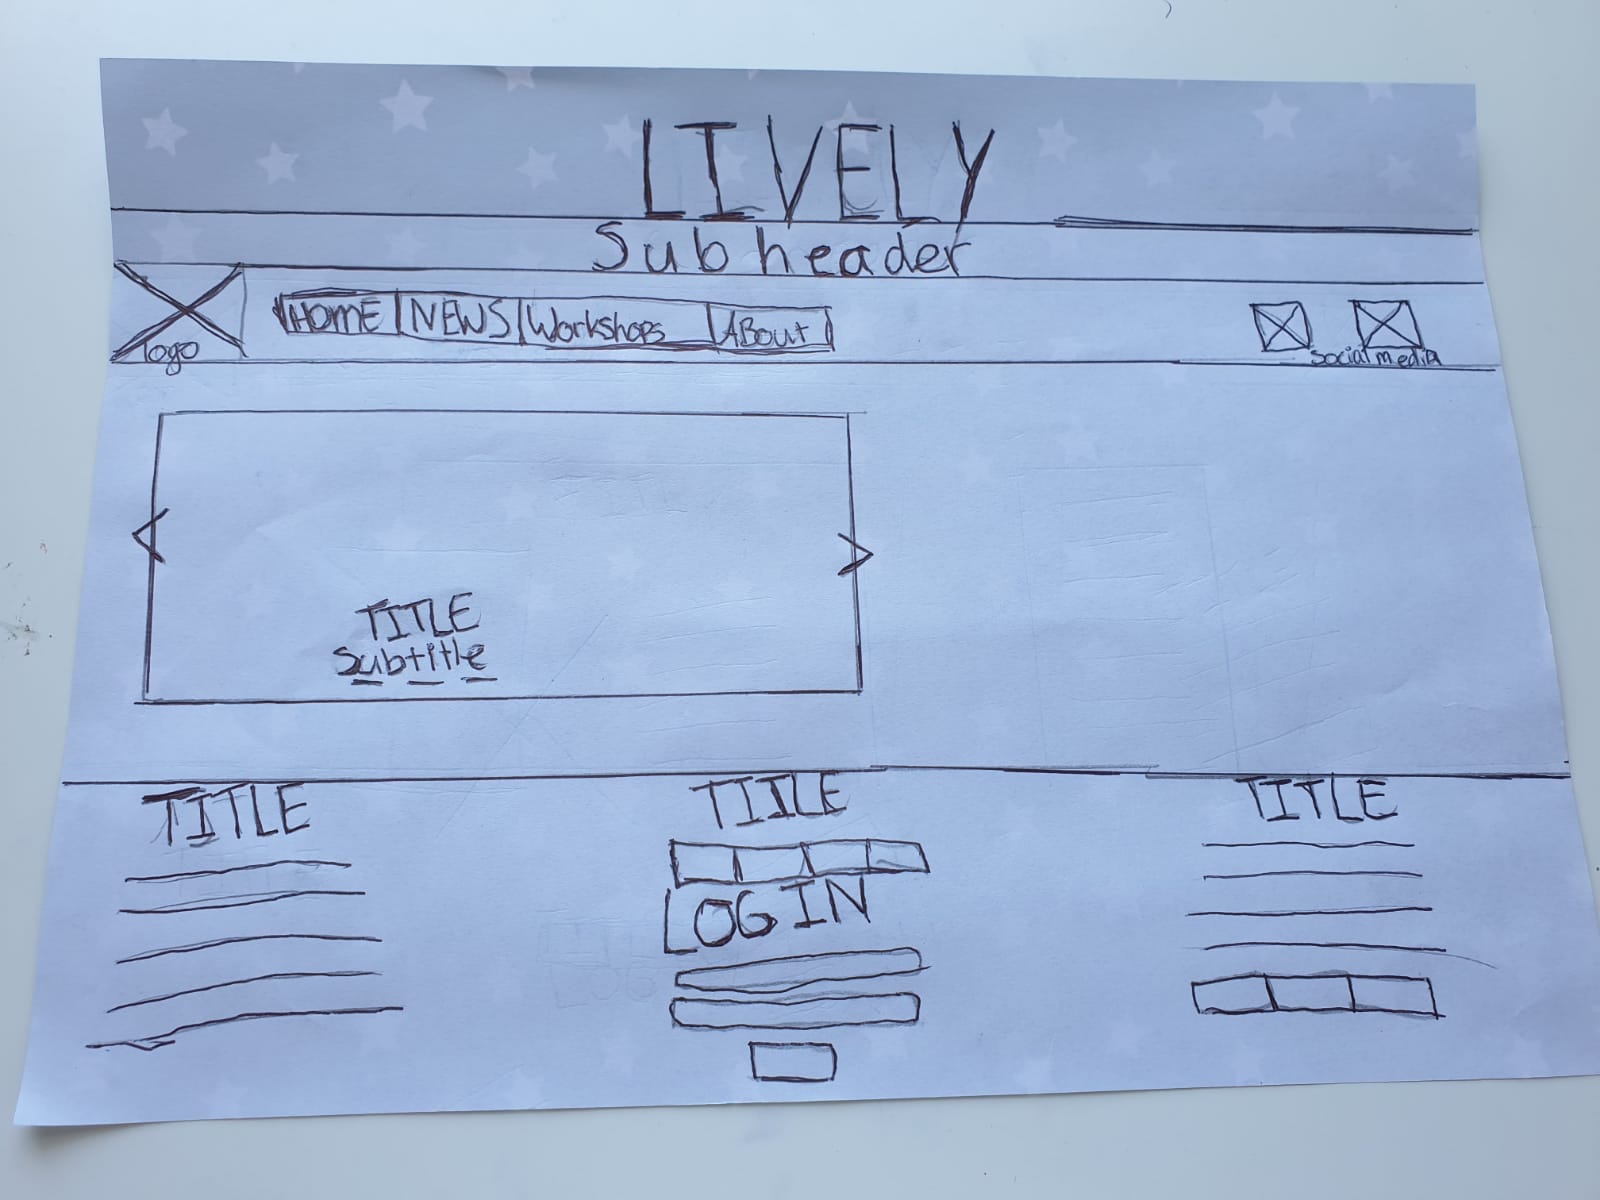 LIVELY
Sub header
logo
HOME NEWS Workshops ABout
social media
TITLE
Subtitle
TITLE
TITLE
TITLE
LOGIN